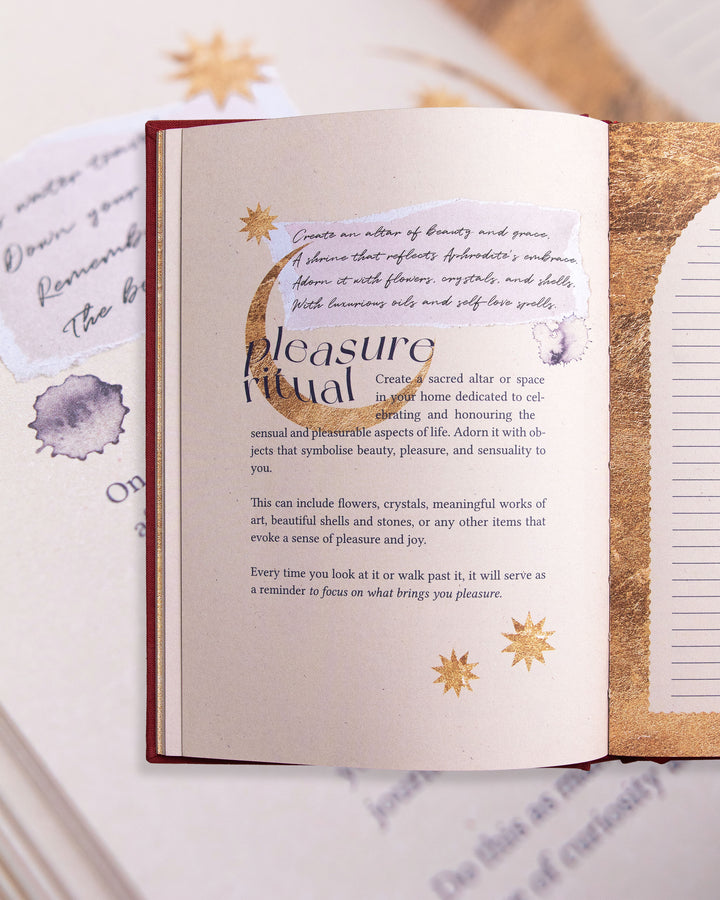 water
Down your
Rememb
The be
On
Create an altar of beauty and grace,
A shrine that reflects Aphrodite's embrace.
Adorn it with flowers, crystals, and shells,
With luxurious oils and self-love spells.
pleasure
ritual
Create a sacred altar or space
in your home dedicated to cel-
ebrating and honouring the
sensual and pleasurable aspects of life. Adorn it with ob-
jects that symbolise beauty, pleasure, and sensuality to
you.
This can include flowers, crystals, meaningful works of
art, beautiful shells and stones, or any other items that
evoke a sense of pleasure and joy.
Every time you look at it or walk past it, it will serve as
a reminder to focus on what brings you pleasure.
Do this as
of curiosity